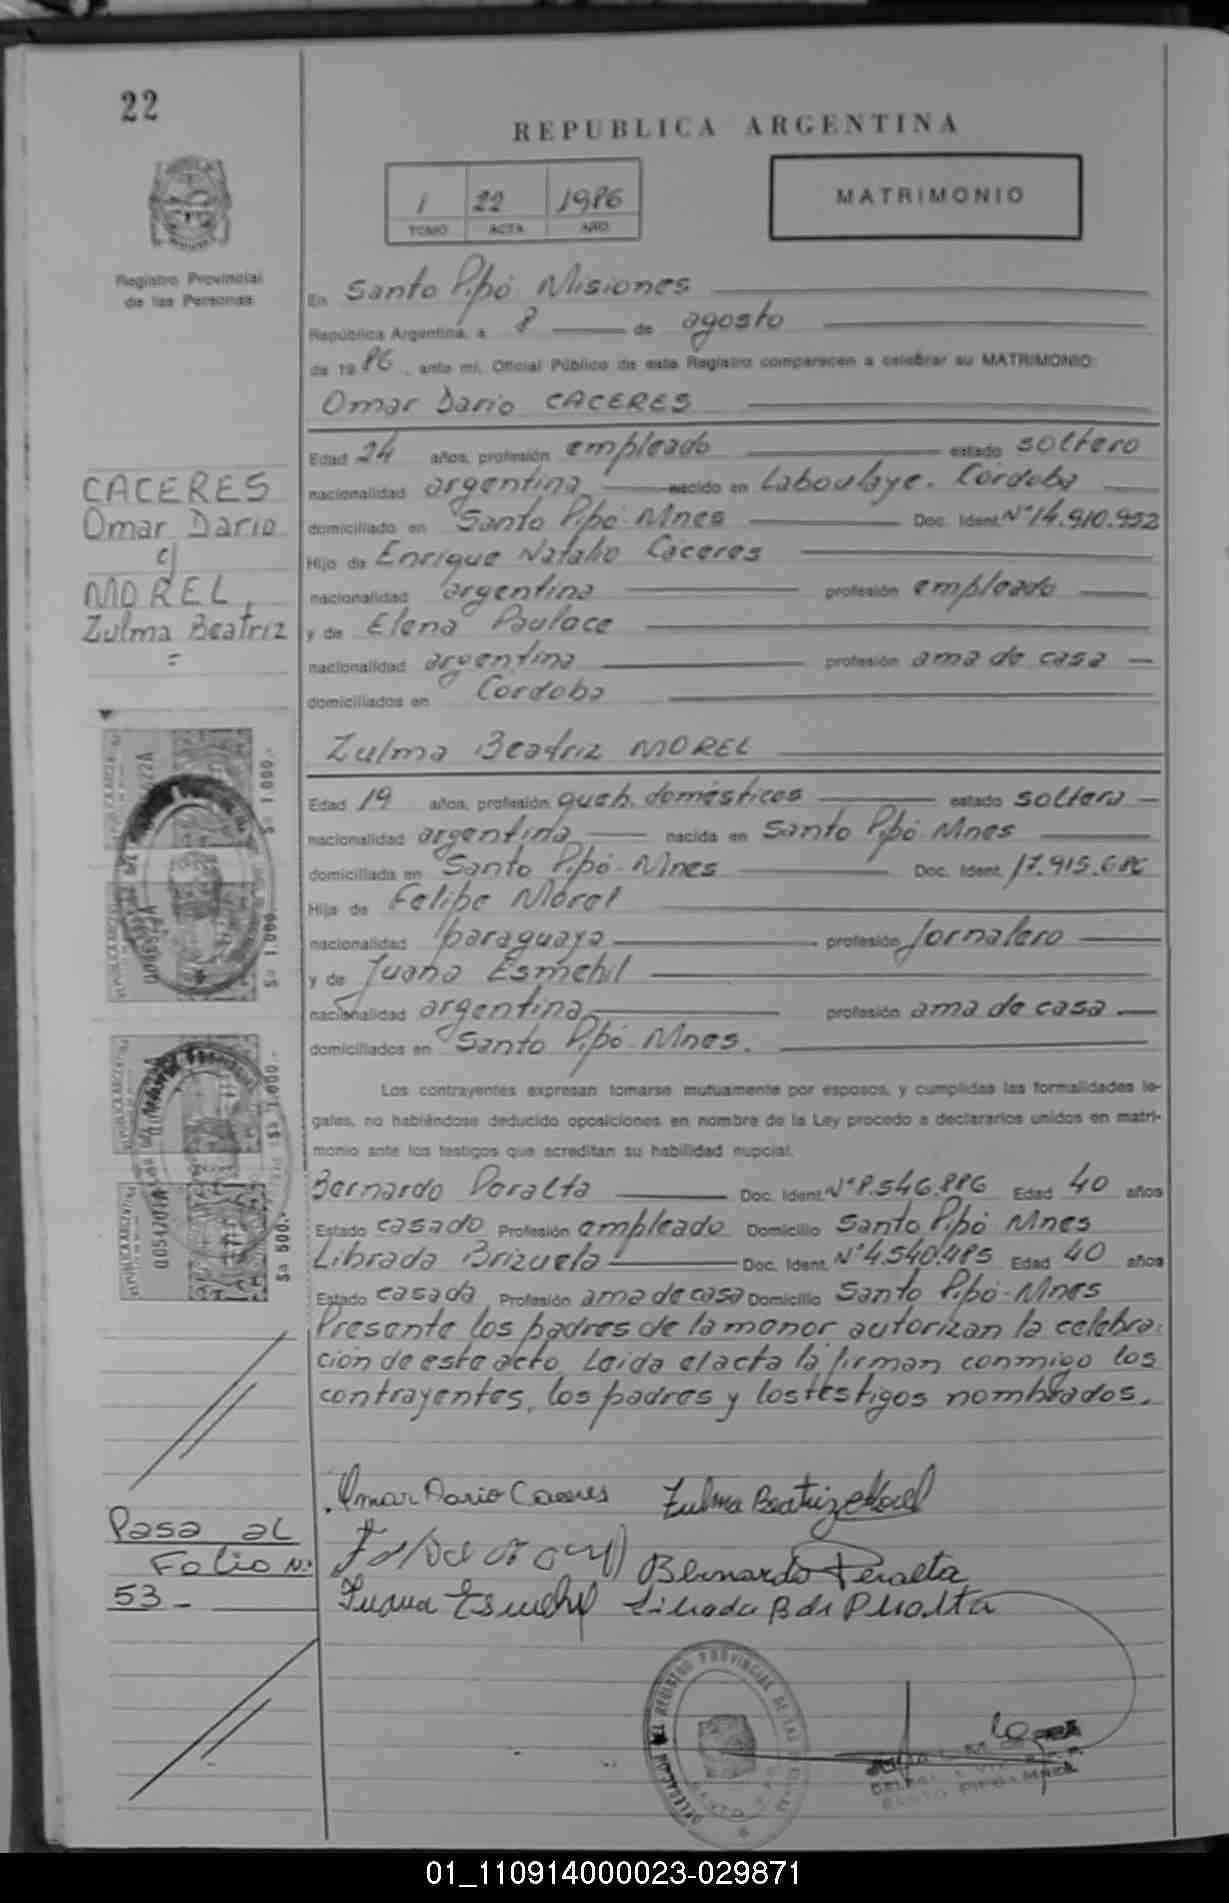 22
REPUBLICA ARGENTINA
1 22 1986
TOMO ACTA AÑO
MATRIMONIO
Registro Provincial
de las Personas
En Santo Pipó Misiones
República Argentina, a 8 de agosto
de 1986, ante mí, Oficial Público de este Registro comparecen a celebrar su MATRIMONIO:
Omar Dario CACERES
Edad 24 años, profesión empleado estado soltero
nacionalidad argentina nacido en Laboulaye. Córdoba
domiciliado en Santo Pipó. Mnes Doc. Ident. Nº 14.910.952
Hijo de Enrique Natalio Cáceres
nacionalidad argentina profesión empleado
y de Elena Paulace
nacionalidad argentina profesión ama de casa
domiciliados en Córdoba
CACERES
Omar Dario
c/
MOREL,
Zulma Beatriz
=
Zulma Beatriz MOREL
Edad 19 años, profesión queh. domésticos estado soltera
nacionalidad argentina nacida en Santo Pipó. Mnes
domiciliada en Santo Pipó. Mnes Doc. Ident. 17.915.686
Hija de Felipe Morel
nacionalidad paraguaya profesión jornalero
y de Juana Esmehil
nacionalidad argentina profesión ama de casa
domiciliados en Santo Pipó. Mnes.
Los contrayentes expresan tomarse mutuamente por esposos, y cumplidas las formalidades le-
gales, no habiéndose deducido oposiciones en nombre de la Ley procedo a declararlos unidos en matri-
monio ante los testigos que acreditan su habilidad nupcial.
Bernardo Peralta Doc. Ident. Nº 8.546.886 Edad 40 años
Estado casado Profesión empleado Domicilio Santo Pipó Mnes
Librada Brizuela Doc. Ident. Nº 4.540.485 Edad 40 años
Estado casada Profesión ama de casa Domicilio Santo Pipó-Mnes
Presente los padres de la menor autorizan la celebra-
ción de este acto. Leida el acta la firman conmigo los
contrayentes, los padres y los testigos nombrados.
$a 1.000.-
$a 1.000.-
$a 1.000.-
$a 500.-
Omar Dario Caceres Zulma Beatriz Morel
Bernardo Peralta
Juana Esmehil Librada B de Peralta
Pasa al
Folio Nº
53 -
REGISTRO PROVINCIAL DE LAS
01_110914000023-029871